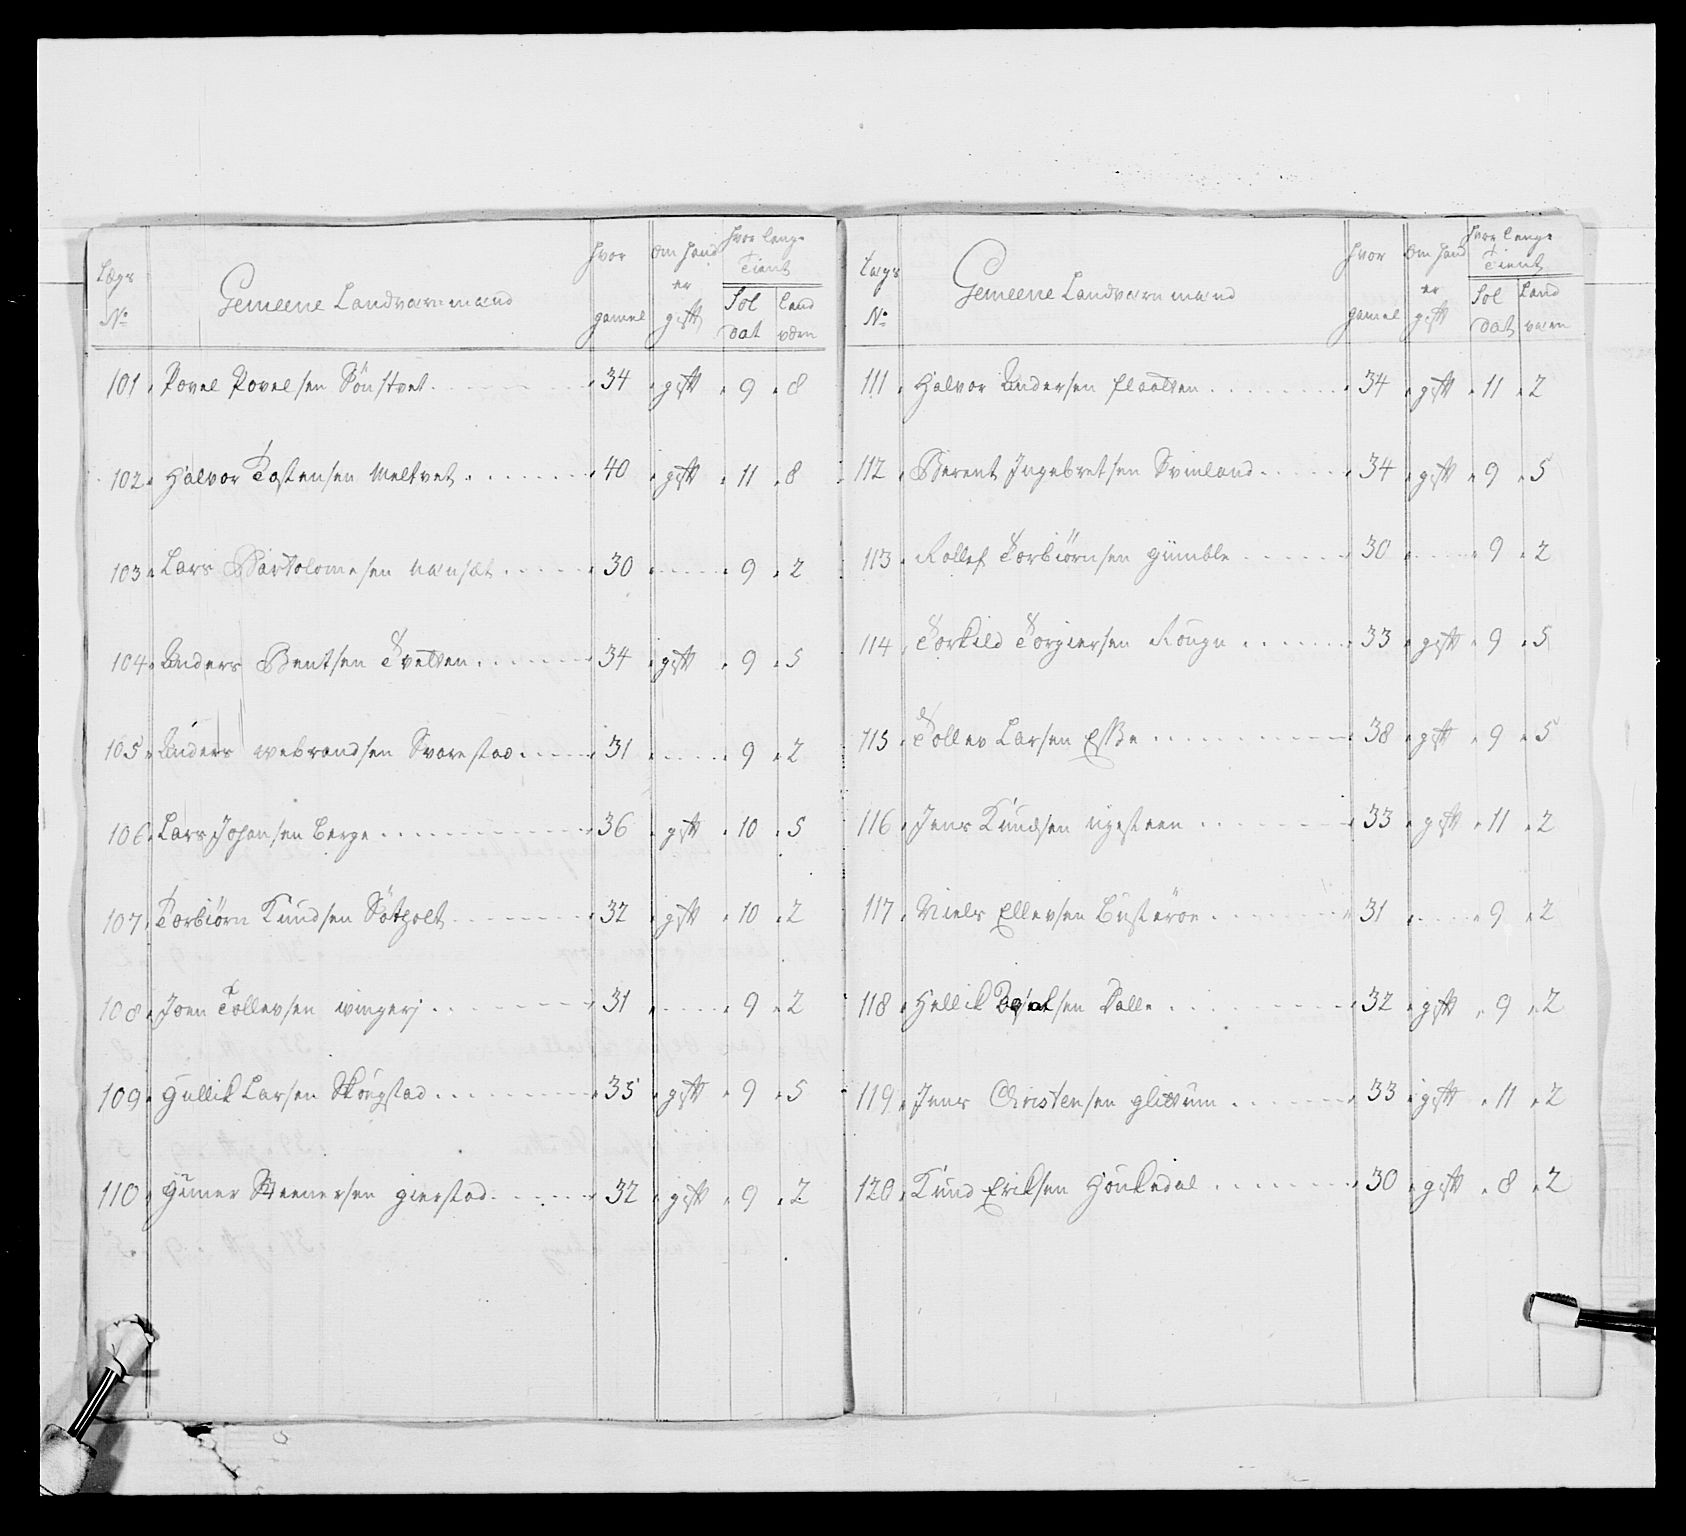 Lægs No
Gemeene Landværnmænd
hvor gamel
om hand er gift
hvor lenge Tient
Sol dat
Land værn
101 Povel Povelsen Sönstvet 34 gift 9 8
102 Halvor Tostensen Meltvet 40 gift 11 8
103 Lars Bartolomesen Nansæt 30 9 2
104 Anders Bentsen Tvetten 34 gift 9 5
105 Anders Webrandsen Svarestad 31 9 2
106 Lars Johansen Berge 36 gift 10 5
107 Torbiörn Knudsen Sötholt 32 gift 10 2
108 Joen Tollevsen Vingerj 31 9 2
109 Gullik Larsen Skougstad 35 gift 9 5
110 Gunner Steenersen Gierstad 32 gift 9 2
Lægs No
Gemeene Landværnmænd
hvor gamel
om hand er gift
hvor lenge Tient
Sol dat
Land værn
111 Halvor Andersen Flaatten 34 gift 11 2
112 Berent Ingebretsen Svinland 34 gift 9 5
113 Rollef Torbiörnsen Gumble 30 9 2
114 Torkild Torgiersen Rougn 33 gift 9 5
115 Tollev Larsen 38 gift 9 5
116 Jens Knudsen Ngesteen 33 gift 11 2
117 Niels Ellevsen Busteröe 31 9 2
118 Hellik Dalle 32 gift 9 2
119 Jens Christensen Glittum 33 gift 11 2
120 Knud Eriksen Houkedal 30 gift 8 2